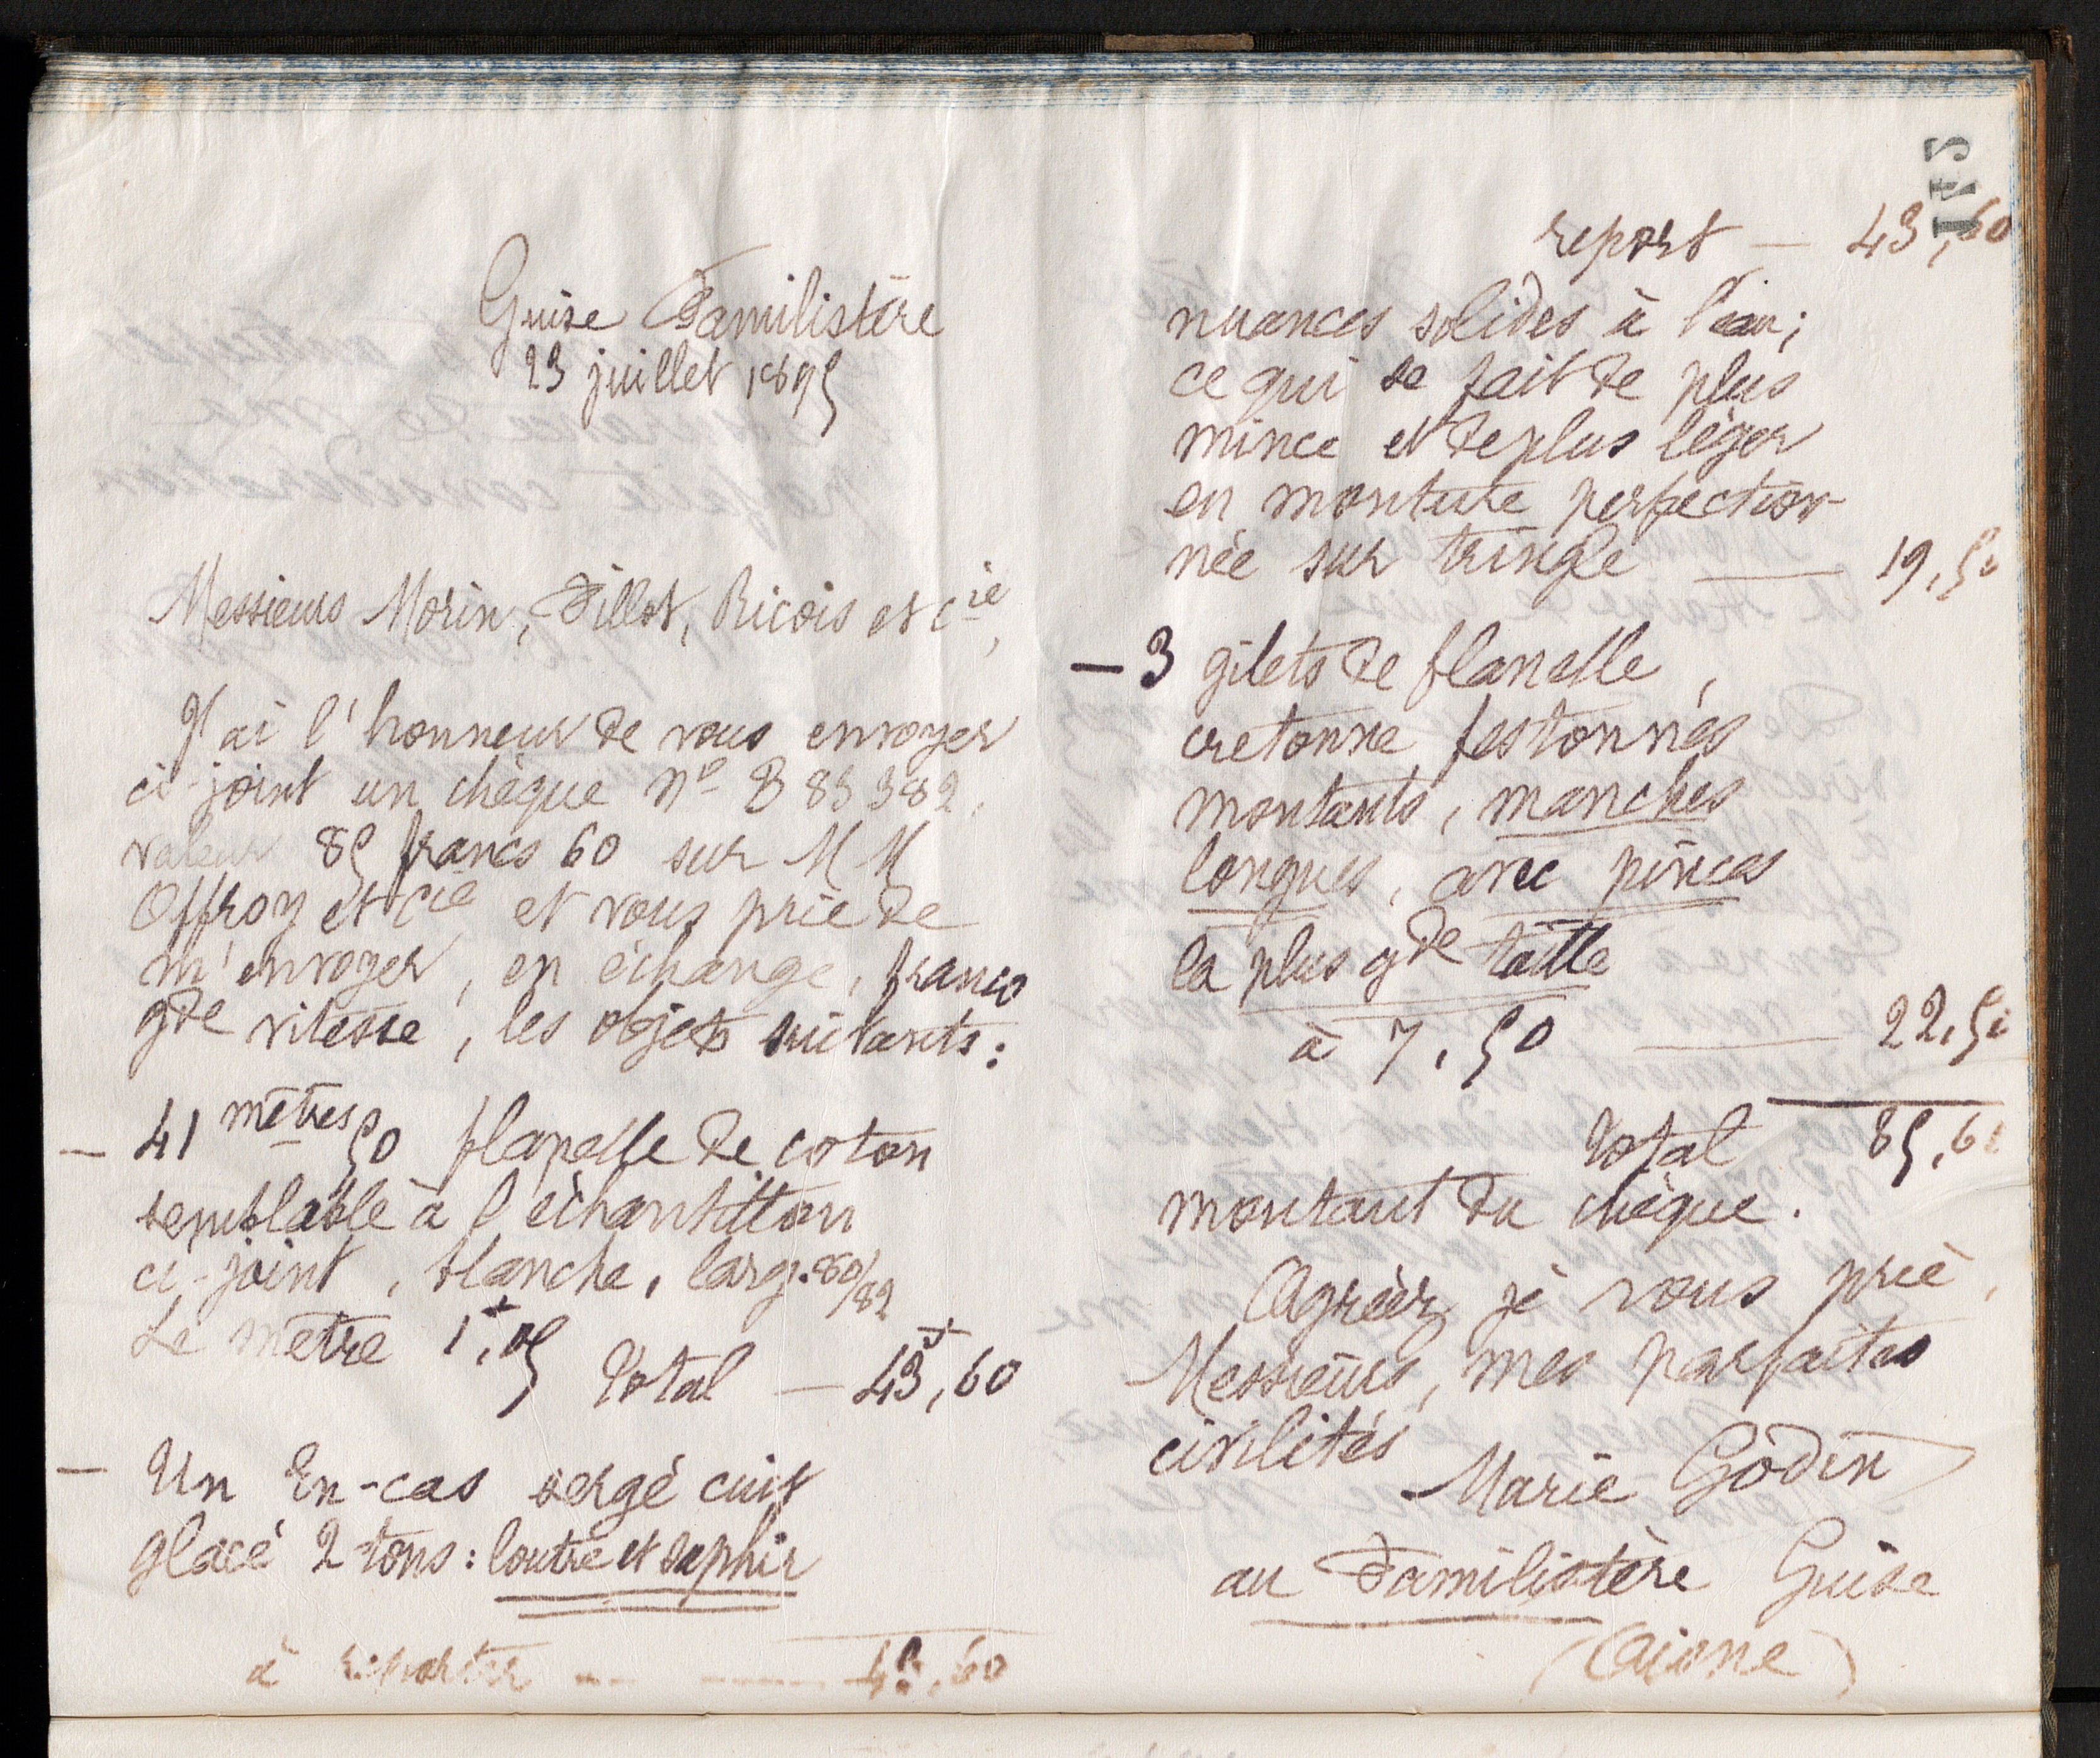 Guise Familistère
23 juillet 1895
Messieurs Morin, Fillot, Ricois et Cie,
J'ai l'honneur de vous envoyer
ci-joint un chèque no 883382,
valeur 85 francs 60 sur MM
Offroy et Cie et vous prie de
m'envoyer, en échange, franco
gde vitesse, les objets suivants:
– 41 mètres 50 flanelle de coton
semblable à l'échantillon
ci-joint, blanche, larg. 80/82
Le mètre 1f,05 Total — 43f,60
– Un En-cas sergé cuit
glacé 2 tons: loutre et saphir
à reporter -- —— 43,60
report — 43,60
nuances solides à l'eau;
ce qui se fait de plus
mince et de plus léger
en monture perfection-
née sur tringle —— 19,50
– 3 gilets de flanelle,
cretonne festonnés
montants, manches
longues, avec pinces
la plus gde taille
à 7,50 —— 22,50
Total 85,60
montant du chèque.
Agréer je vous prie,
Messieurs, mes parfaites
civilités
Marie Godin
au Familistère Guise
(Aisne)